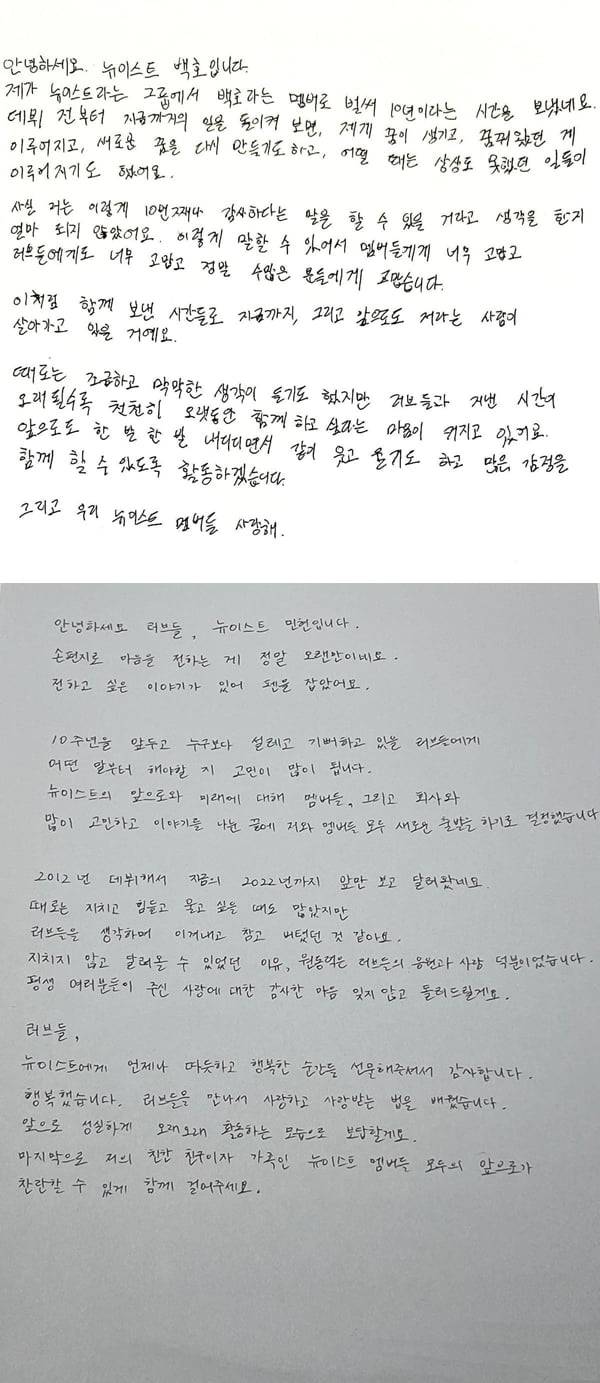 안녕하세요. 뉴이스트 백호입니다.
제가 뉴이스트라는 그룹에서 백호라는 멤버로 벌써 10년이라는 시간을 보냈네요.
데뷔 전부터 지금까지의 일을 돌이켜 보면, 제게 꿈이 생기고, 꿈꿔왔던 게
이루어지고, 새로운 꿈을 다시 만들기도하고, 어떨 때는 상상도 못했던 일들이
이루어지기도 했어요.
사실 저는 이렇게 10번째나 감사하다는 말을 할 수 있을 거라고 생각을 한지
얼마 되지 않았어요. 이렇게 말할 수 있어서 멤버들에게 너무 고맙고
러브들에게도 너무 고맙고 정말 수많은 분들에게 고맙습니다.
이처럼 함께 보낸 시간들로 지금까지, 그리고 앞으로도 저라는 사람이
살아가고 있을 거예요.
때로는 조급하고 막막한 생각이 들기도 했지만 러브들과 지낸 시간이
오래될수록 천천히 오랫동안 함께 하고 싶다는 마음이 커지고 있어요.
앞으로도 한 발 한 발 내디디면서 같이 웃고 울기도 하고 많은 감정을
함께 할 수 있도록 활동하겠습니다.
그리고 우리 뉴이스트 멤버들 사랑해.
안녕하세요 러브들, 뉴이스트 민현입니다.
손편지로 마음을 전하는 게 정말 오랜만이네요.
전하고 싶은 이야기가 있어 펜을 잡았어요.
10주년을 앞두고 누구보다 설레고 기뻐하고 있을 러브들에게
어떤 말부터 해야할 지 고민이 많이 됩니다.
뉴이스트의 앞으로와 미래에 대해 멤버들, 그리고 회사와
많이 고민하고 이야기를 나눈 끝에 저와 멤버들 모두 새로운 출발을 하기로 결정했습니다
2012년 데뷔해서 지금의 2022년까지 앞만 보고 달려왔네요.
때로는 지치고 힘들고 울고 싶을 때도 많았지만
러브들을 생각하며 이겨내고 참고 버텼던 것 같아요.
지치지 않고 달려올 수 있었던 이유, 원동력은 러브들의 응원과 사랑 덕분이었습니다.
평생 여러분들이 주신 사랑에 대한 감사한 마음 잊지 않고 돌려드릴게요.
러브들,
뉴이스트에게 언제나 따듯하고 행복한 순간들 선물해주셔서 감사합니다.
행복했습니다. 러브들을 만나서 사랑하고 사랑받는 법을 배웠습니다.
앞으로 성실하게 오래오래 활동하는 모습으로 보답할게요.
마지막으로 저의 친한 친구이자 가족인 뉴이스트 멤버들 모두의 앞으로가
찬란할 수 있게 함께 걸어주세요.